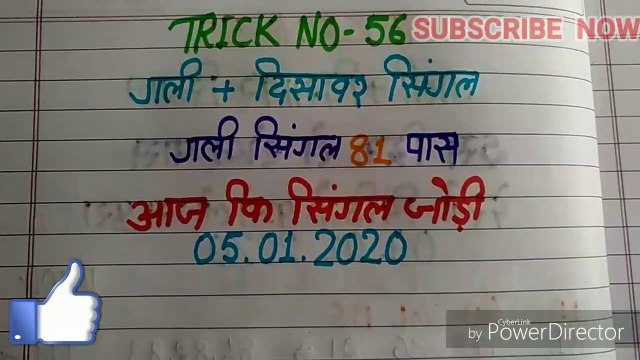 TRICK NO-56
SUBSCRIBE NOW
गली + दिसावर सिंगल
गली सिंगल 81 पास
आज कि सिंगल जोड़ी
05.01.2020
CyberLink
by PowerDirector